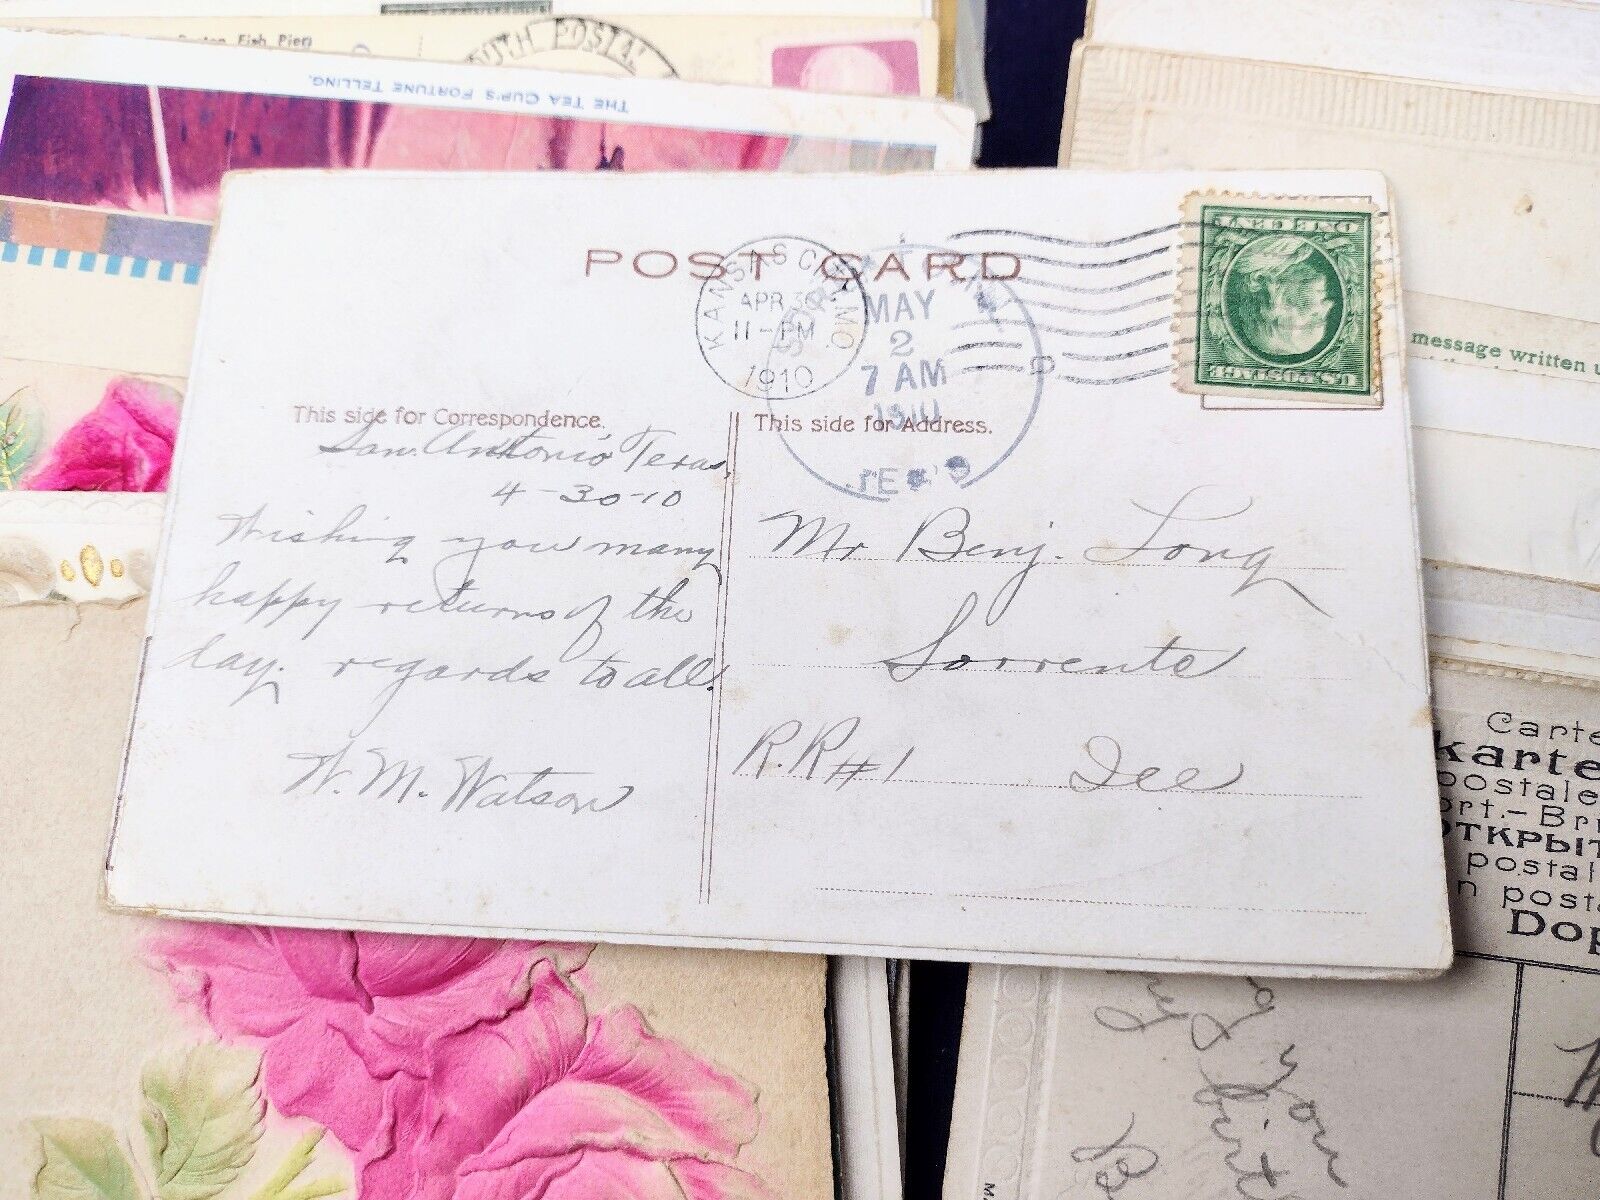 Fish Pier)
POSTAL
THE TEA CUP'S FORTUNE TELLING.
POST CARD
KANSAS CITY, MO.
APR 30
11-PM
1910
MAY
2
7 AM
1910
ONE CENT
U.S. POSTAGE
This side for Correspondence.
This side for Address.
San. Antonio Texas,
4-30-10
Wishing you many
happy returns of the
day. regards to all.
W. M. Watson
Mr Benj. Long
Sorrento
R.R#1 Ill
message written
Carte
karte
postale
ort.-Brr
ОТКРЫТ
postal
n posta
Dop
you
birt